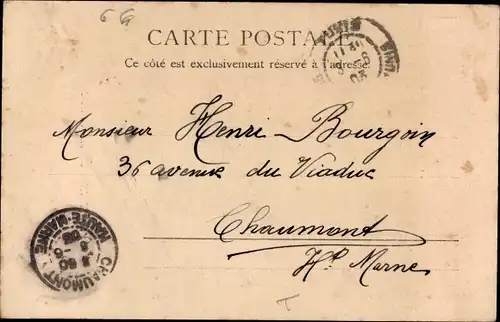 CARTE POSTALE
Ce côté est exclusivement réservé à l'adresse.
Monsieur Henri Bourgoin
36 avenue du Viaduc
Chaumont
Hte Marne
CHAUMONT
HAUTE-MARNE